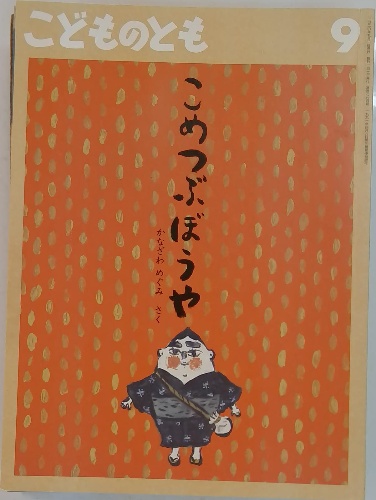 こどものとも
9
こめつぶぼうや
かなざわ めぐみ さく